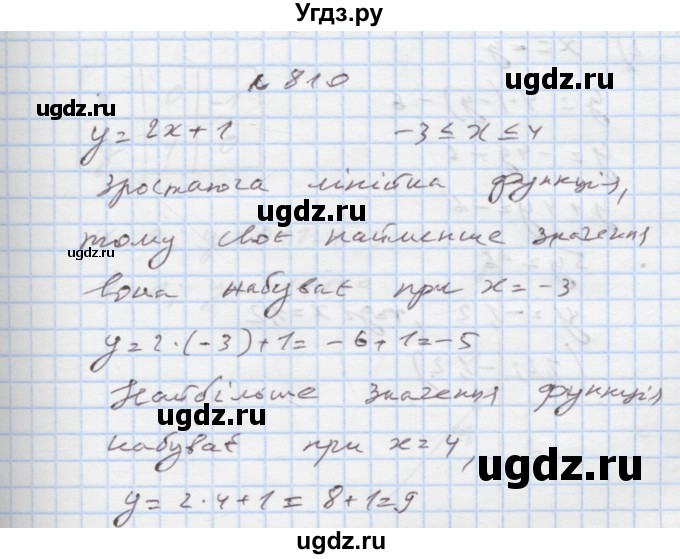 Угдз.ру
№ 810
y = 2x + 1   -3 ≤ x ≤ 4
Зростаюча лінійна функція,
тому своє найменше значення
вона набуває при x = -3
y = 2·(-3)+1 = -6+1 = -5
Найбільше значення функція
набуває при x = 4,
y = 2·4+1 = 8+1 = 9
ugdz.ru
ugdz.ru
ugdz.ru
ugdz.ru
ugdz.ru
ugdz.ru
ugdz.ru
ugdz.ru
ugdz.ru
ugdz.ru
ugdz.ru